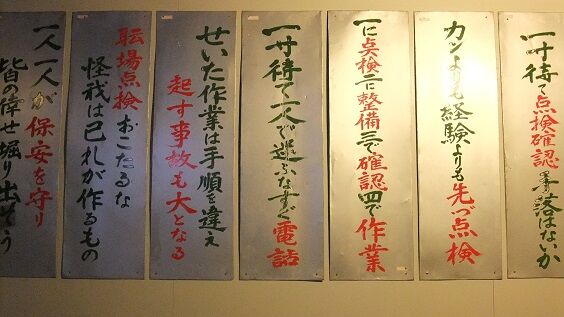 一寸待て点検確認落はないか
カンよりも経験よりも先づ点検
一に点検二に整備三で確認四で作業
一寸待て一人で運ぶなすぐ電話
せいた作業は手順を違え
起す事故も大となる
耺場点検おこたるな
怪我は己れが作るもの
一人一人が保安を守り
皆の倖せ掘り出そう